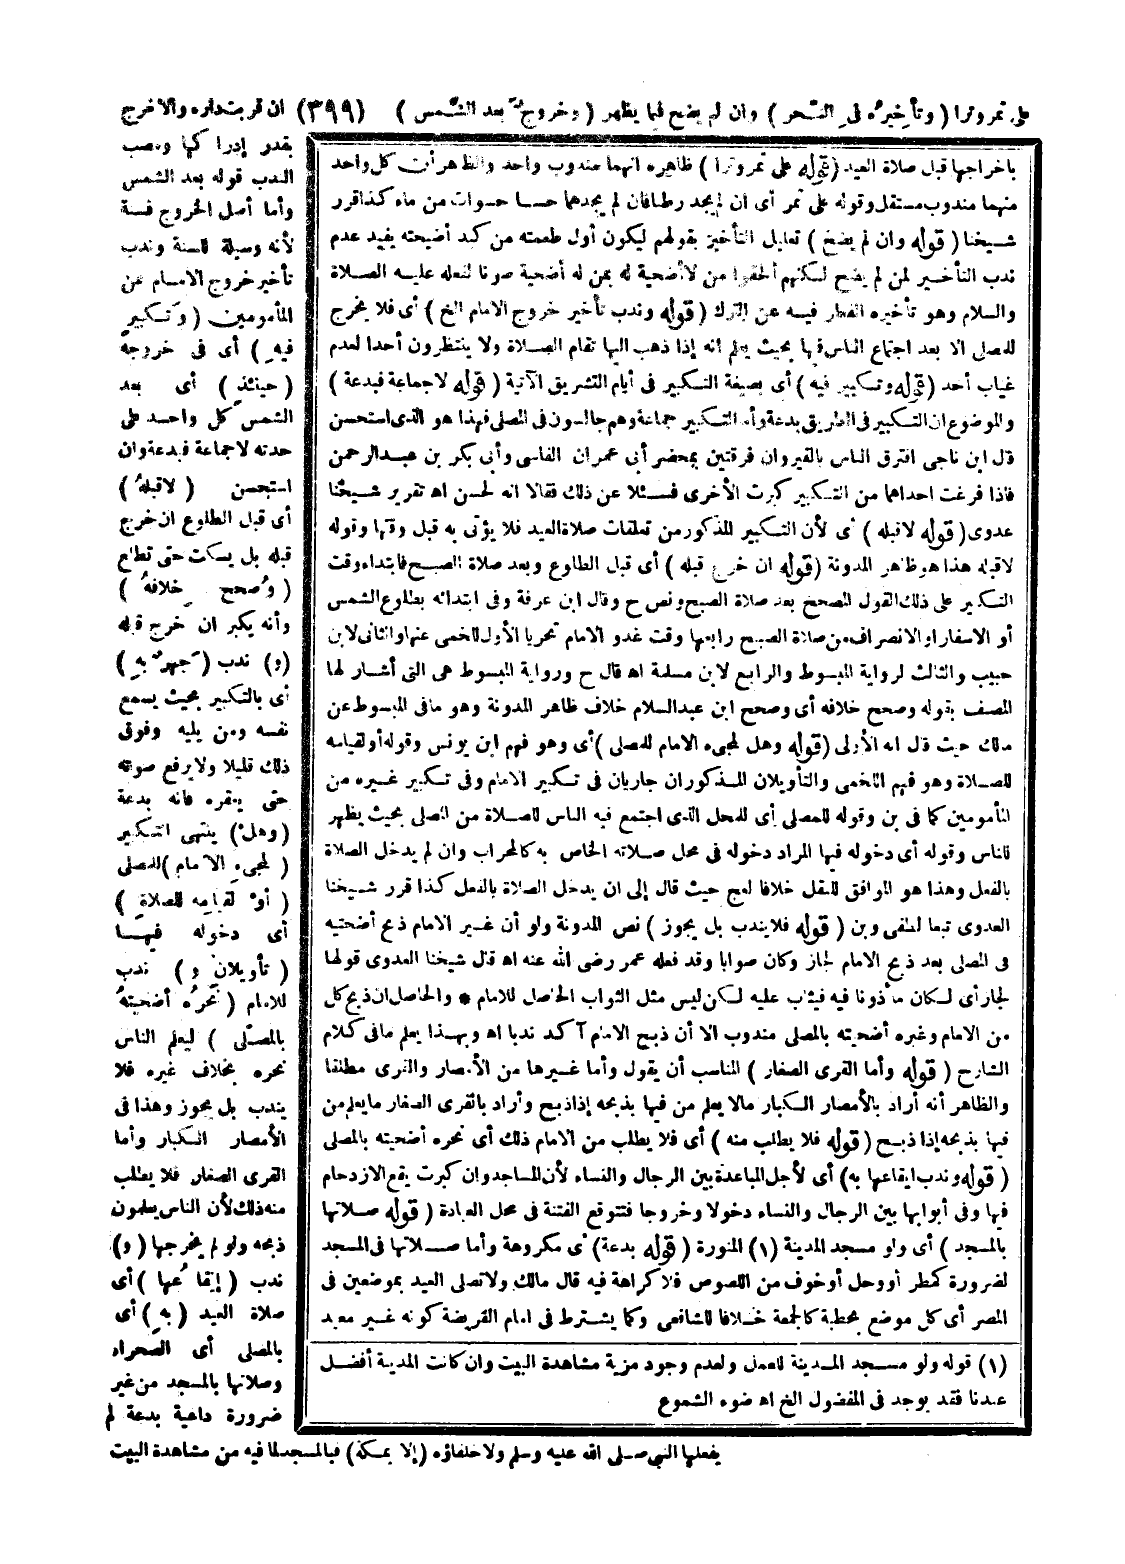 على تمر وترا (وتأخيره فى النحر) وان لم يضح فيما يظهر (وخروج بعد الشمس) (٣٩٩) ان قربت داره والاخرج
بقدر إدراكها ومصب
الندب قوله بعد الشمس
وأما أصل الخروج فسنة
لأنه وسيلة للسنة وندب
تأخير خروج الامام عن
المأمومين (وتكبير
فيه) أى فى خروجه
(حينئذ) أى بعد
الشمس كل واحد على
حدته لا جماعة فبدعة وان
استحسن (لا قبله)
أى قبل الطلوع ان خرج
قبله بل يسكت حتى تطلع
(وصحح خلافه)
وأنه يكبر ان خرج قبله
(و) ندب (جهر به)
أى بالتكبير بحيث يسمع
نفسه ومن يليه وفوق
ذلك قليلا ولا يرفع صوته
حتى يعقره فانه بدعة
(وهل) ينتهى التكبير
(لمجىء الامام) للمصلى
(أو لقيامه للصلاة)
أى دخوله فيها
(تأويلان و) ندب
للامام (نحره أضحيته
بالمصلى) ليعلم الناس
نحره بخلاف غيره فلا
يندب بل يجوز وهذا فى
الأمصار الكبار وأما
القرى الصغار فلا يطلب
منه ذلك لأن الناس يعلمون
ذبحه ولو لم يخرجها (و)
ندب (إيقاعها) أى
صلاة العيد (به) أى
بالمصلى أى الصحراء
وصلاتها بالمسجد من غير
ضرورة داعية بدعة لم
يفعلها النبي صلى الله عليه وسلم ولا خلفاؤه (إلا بمكة) فبالمسجد لما فيه من مشاهدة البيت
باخراجها قبل صلاة العيد (قوله على تمر وترا) ظاهره انهما مندوب واحد والظاهر أن كل واحد
منهما مندوب مستقل وقوله على تمر أى ان لم يجد رطبا فان لم يجدهما حسا حسوات من ماء كذا قرر
شيخنا (قوله وان لم يضح) تعليل التأخير بقولهم ليكون أول طعمته من كبد أضحيته يفيد عدم
ندب التأخير لمن لم يضح لكنهم ألحقوا من لا أضحية له بمن له أضحية صونا لفعله عليه الصلاة
والسلام وهو تأخيره الفطر فيه عن الترك (قوله وندب تأخير خروج الامام الخ) أى فلا يخرج
للمصلى الا بعد اجتماع الناس فيها بحيث يعلم أنه إذا ذهب اليها تقام الصلاة ولا ينتظرون أحدا لعدم
غياب أحد (قوله وتكبير فيه) أى بصيغة التكبير فى أيام التشريق الآتية (قوله لا جماعة فبدعة)
والموضوع ان التكبير فى الطريق بدعة وأما التكبير جماعة وهم جالسون فى المصلى فهذا هو الذى استحسن
قال ابن ناجى افترق الناس بالقيروان فرقتين بمحضر أبى عمران الفاسى وأبى بكر بن عبد الرحمن
فاذا فرغت احداهما من التكبير كبرت الأخرى فسئلا عن ذلك فقالا انه لحسن اه تقرير شيخنا
عدوى (قوله لا قبله) أى لأن التكبير للمذكور من تعلقات صلاة العيد فلا يؤتى به قبل وقتها وقوله
لا قبله هذا هو ظاهر المدونة (قوله ان خرج قبله) أى قبل الطلوع وبعد صلاة الصبح فابتداء وقت
التكبير على ذلك القول المصحح بعد صلاة الصبح ونص ح وقال ابن عرفة وفى ابتدائه بطلوع الشمس
أو الاسفار أو الانصراف من صلاة الصبح رابعها وقت غدو الامام تحريا الأول للخمى عنها والثانى لابن
حبيب والثالث لرواية المبسوط والرابع لابن مسلمة اه قال ح ورواية المبسوط هى التى أشار لها
المصنف بقوله وصحح خلافه أى وصحح ابن عبد السلام خلاف ظاهر المدونة وهو ما فى المبسوط عن
مالك حيث قال انه الأولى (قوله وهل لمجىء الامام للمصلى) أى وهو فهم ابن يونس وقوله أو لقيامه
للصلاة وهو فهم اللخمى والتأويلان المذكوران جاريان فى تكبير الامام وفى تكبير غيره من
المأمومين كما فى بن وقوله للمصلى أى للمحل الذى اجتمع فيه الناس للصلاة من المصلى بحيث يظهر
للناس وقوله أى دخوله فيها المراد دخوله فى محل صلاته الخاص به كالمحراب وان لم يدخل الصلاة
بالفعل وهذا هو الموافق للنقل خلافا لعج حيث قال إلى ان يدخل الصلاة بالفعل كذا قرر شيخنا
العدوى تبعا لطفى وبن (قوله فلا يندب بل يجوز) نص المدونة ولو أن غير الامام ذبح أضحيته
فى المصلى بعد ذبح الامام لجاز وكان صوابا وقد فعله عمر رضى الله عنه اه قال شيخنا العدوى قولها
لجاز أى لكان مأذونا فيه فيثاب عليه لكن ليس مثل الثواب الحاصل للامام * والحاصل ان ذبح كل
من الامام وغيره أضحيته بالمصلى مندوب الا أن ذبح الامام آكد ندبا اه وبهذا يعلم ما فى كلام
الشارح (قوله وأما القرى الصغار) المناسب أن يقول وأما غيرها من الأمصار والقرى مطلقا
والظاهر أنه أراد بالأمصار الكبار مالا يعلم من فيها بذبحه إذا ذبح وأراد بالقرى الصغار ما يعلم من
فيها بذبحه إذا ذبح (قوله فلا يطلب منه) أى فلا يطلب من الامام ذلك أى نحره أضحيته بالمصلى
(قوله وندب ايقاعها به) أى لأجل المباعدة بين الرجال والنساء لأن المساجد وان كبرت يقع الازدحام
فيها وفى أبوابها بين الرجال والنساء دخولا وخروجا فتتوقع الفتنة فى محل العبادة (قوله صلاتها
بالمسجد) أى ولو مسجد المدينة (١) المنورة (قوله بدعة) أى مكروهة وأما صلاتها فى المسجد
لضرورة كمطر أو وحل أو خوف من اللصوص فلا كراهة فيه قال مالك ولا تصلى العيد بموضعين فى
المصر أى كل موضع بخطبة كالجمعة خلافا للشافعى وكما يشترط فى امام الفريضة كونه غير معيد
(١) قوله ولو مسجد المدينة للعمل ولعدم وجود مزية مشاهدة البيت وان كانت المدينة أفضل
عندنا فقد يوجد فى المفضول الخ اه ضوء الشموع